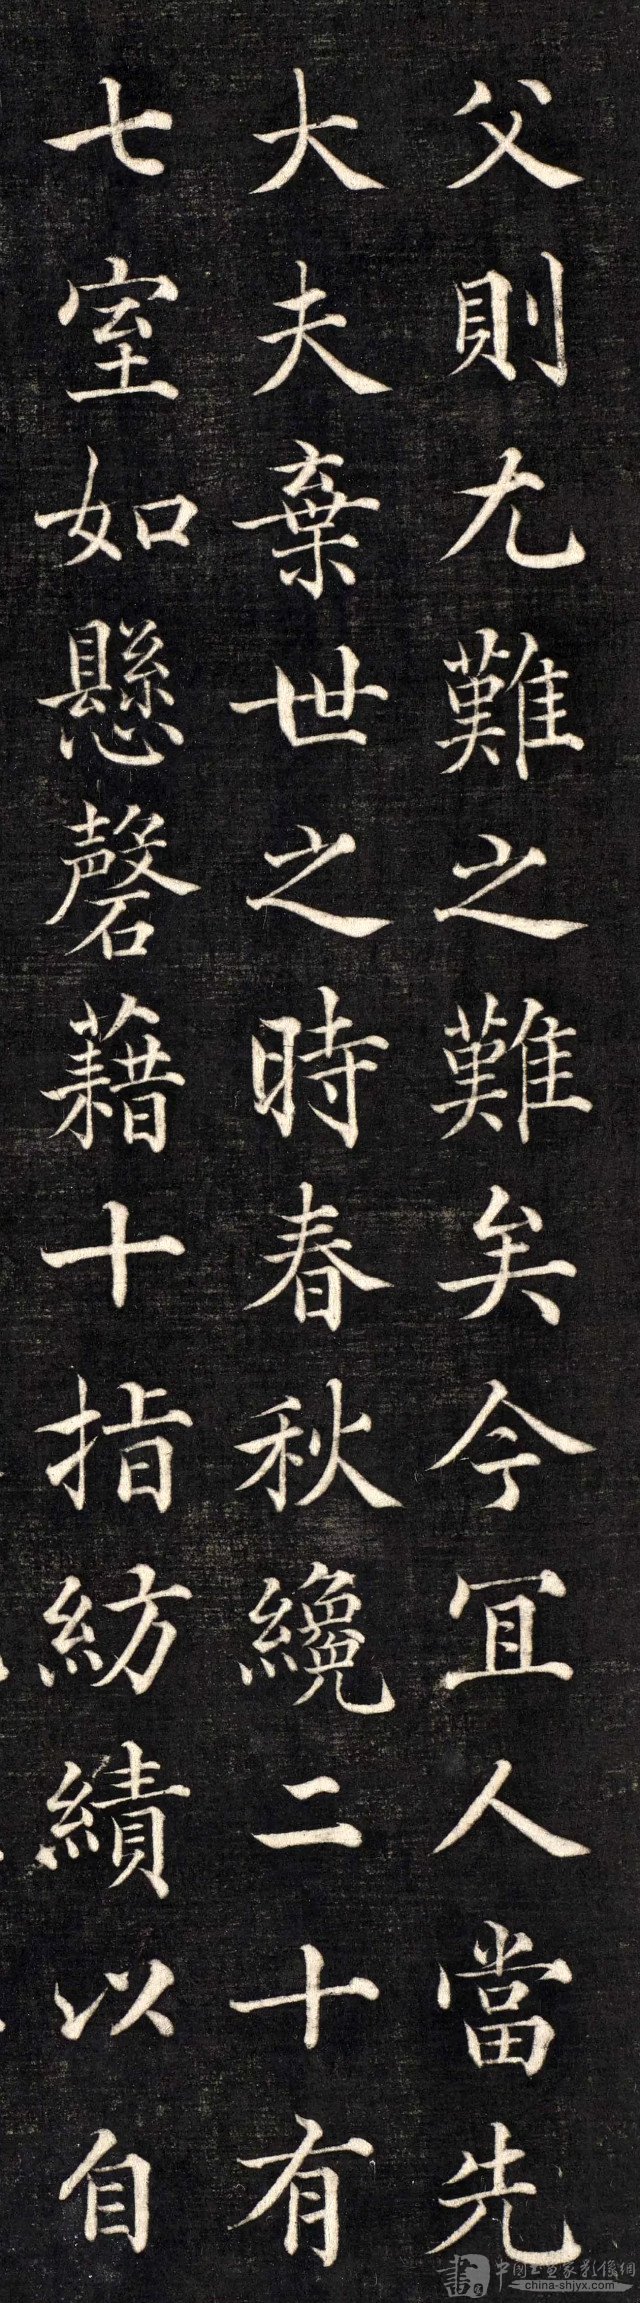 父則尤難之難矣今宜人當先
大夫棄世之時春秋纔二十有
七室如懸磬藉十指紡績以自
書 中国书画家影像網
china-shjyx.com